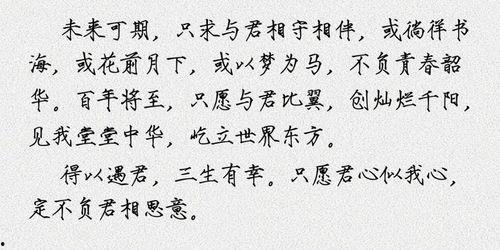 未来可期，只求与君相守相伴，或徜徉书
海，或花前月下，或以梦为马，不负青春韶
华。百年将至，只愿与君比翼，创灿烂千阳，
见我堂堂中华，屹立世界东方。
得以遇君，三生有幸。只愿君心似我心，
定不负君相思意。